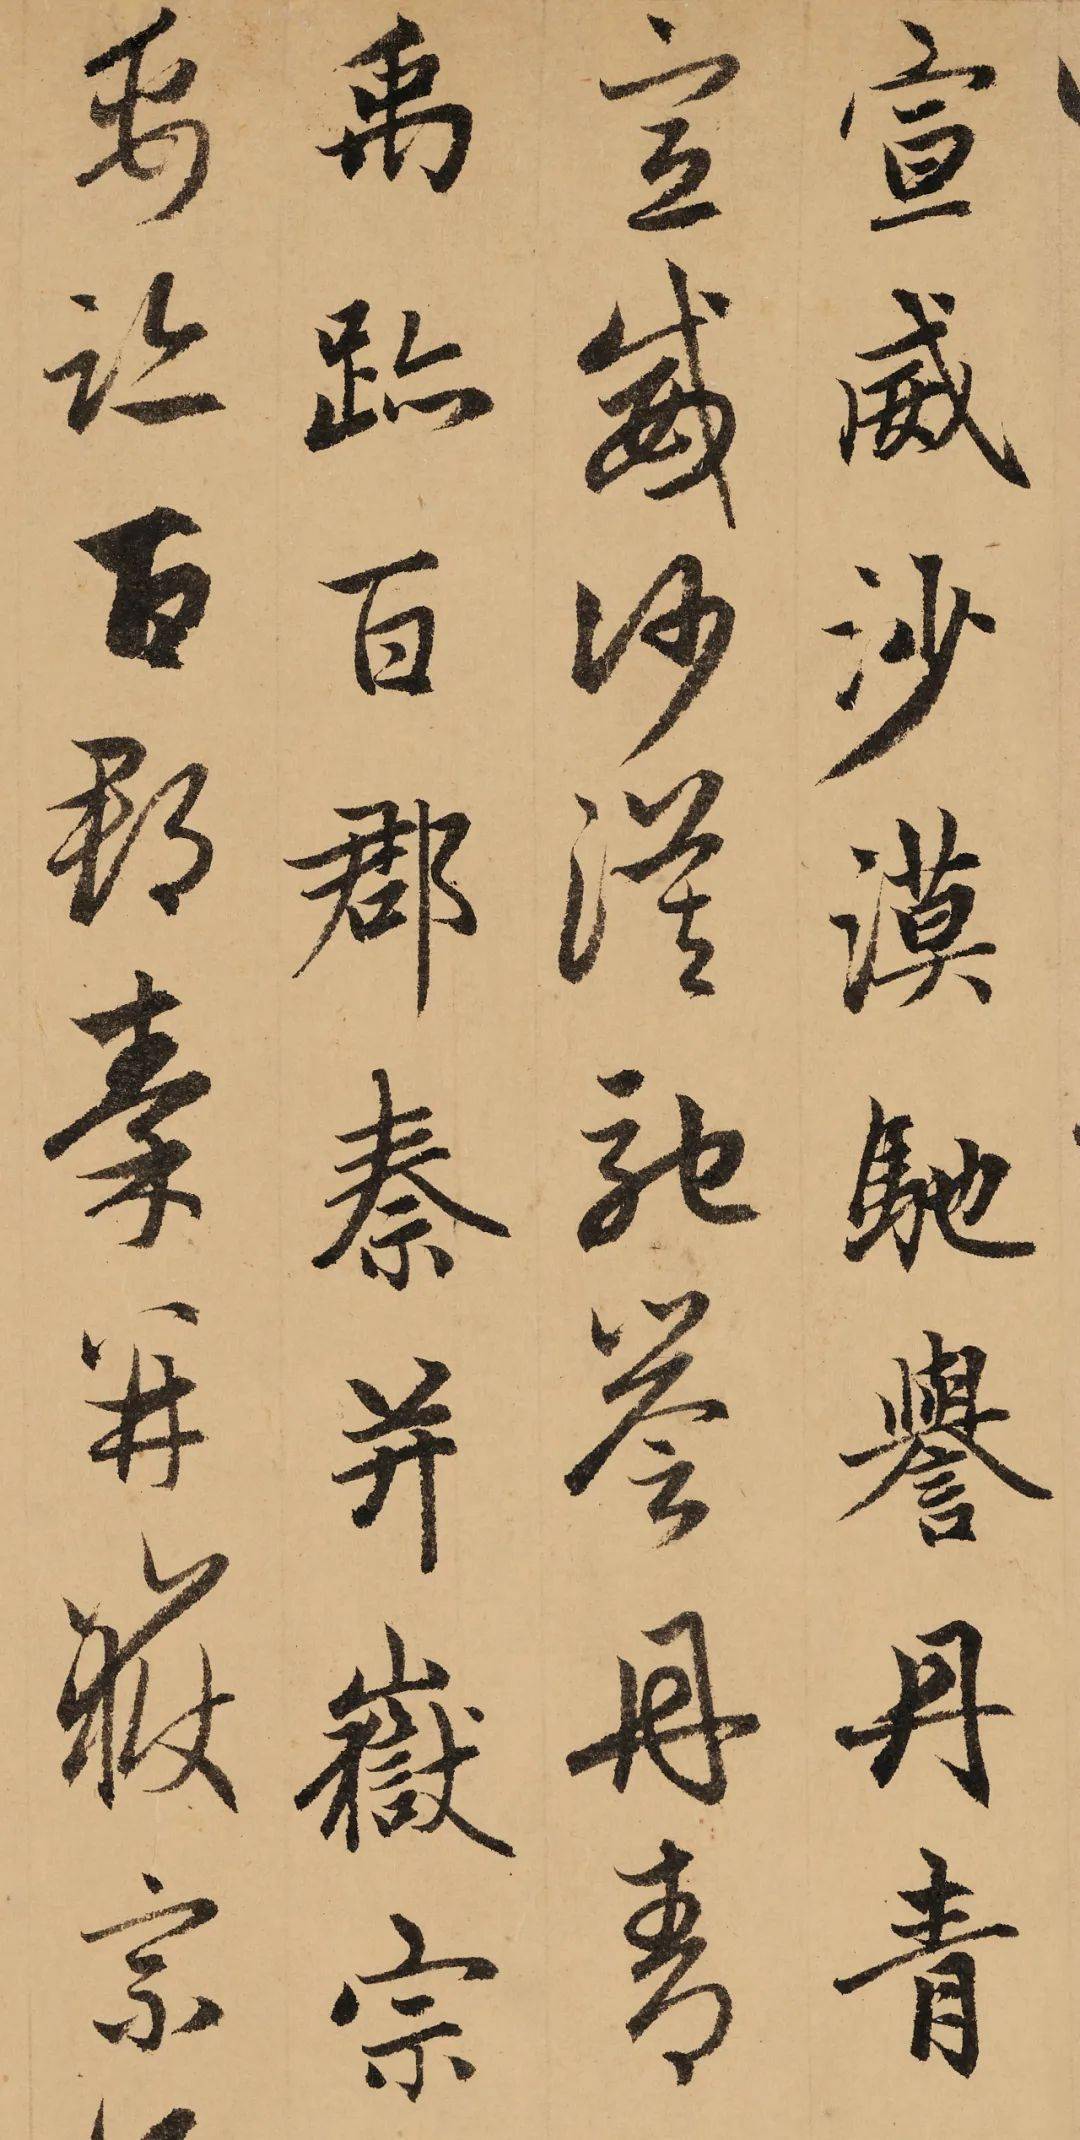 宣威沙漠馳譽丹青
宣威沙漠馳譽丹青
禹跡百郡秦并嶽宗
禹跡百郡秦并嶽宗